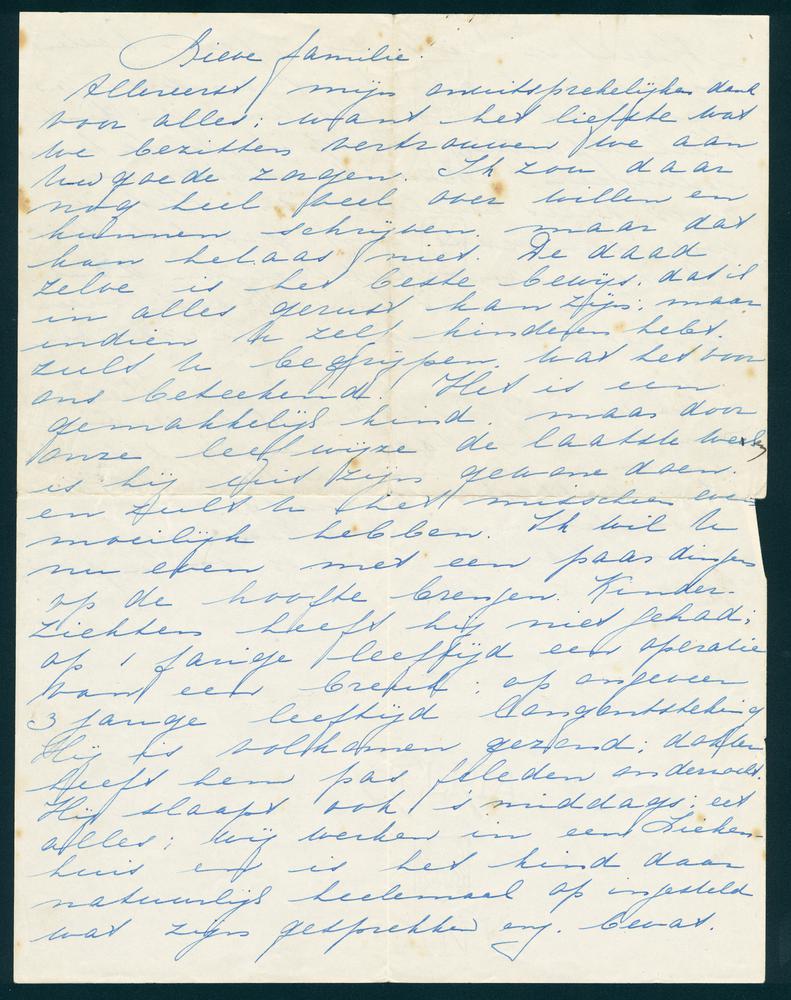 Lieve familie.
Allereerst mijn onuitsprekelijken dank
voor alles; want het liefste wat
we bezitten vertrouwen we aan
Uw goede zorgen. Ik zou daar
nog heel veel over willen en
kunnen schrijven, maar dat
kan helaas niet. De daad
zelve is het beste bewijs, dat ik
in alles gerust kan zijn; maar
indien U zelf kinderen hebt,
zult U begrijpen, wat het voor
ons beteekend. Het is een
gemakkelijk kind, maar door
onze leefwijze de laatste weken
is hij uit zijn gewone doen.
en zult U het misschien even
moeilijk hebben. Ik wil U
nu even met een paar dingen
op de hoogte brengen. Kinder-
ziekten heeft hij niet gehad;
op 1 jarige leeftijd een operatie
van een breuk; op ongeveer
3 jarige leeftijd longontsteking
Hij is volkomen gezond; dokter
heeft hem pas geleden onderzocht.
Hij slaapt ook 's middags; eet
alles; wij werken in een Zieken-
huis en is het kind daar
natuurlijk heelemaal op ingesteld
wat zijn gesprekken enz. bevat.